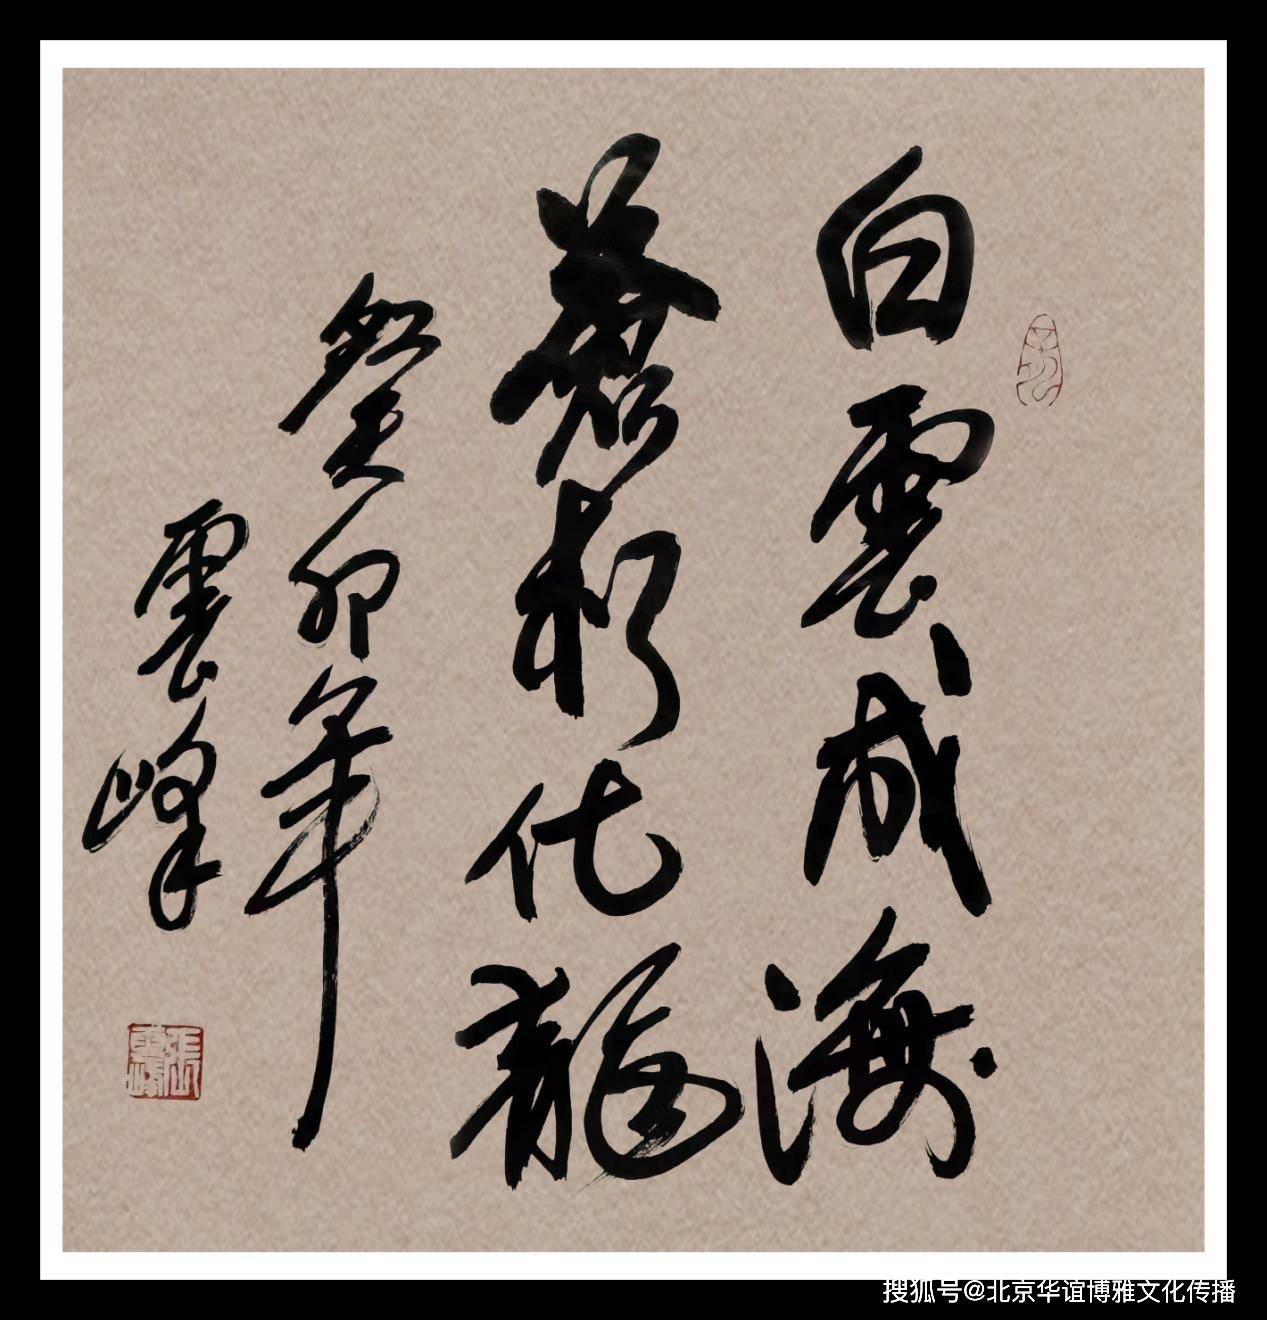 白雲成海
蒼松化龍
癸卯年
雲峰
張雲峰
搜狐号@北京华谊博雅文化传播